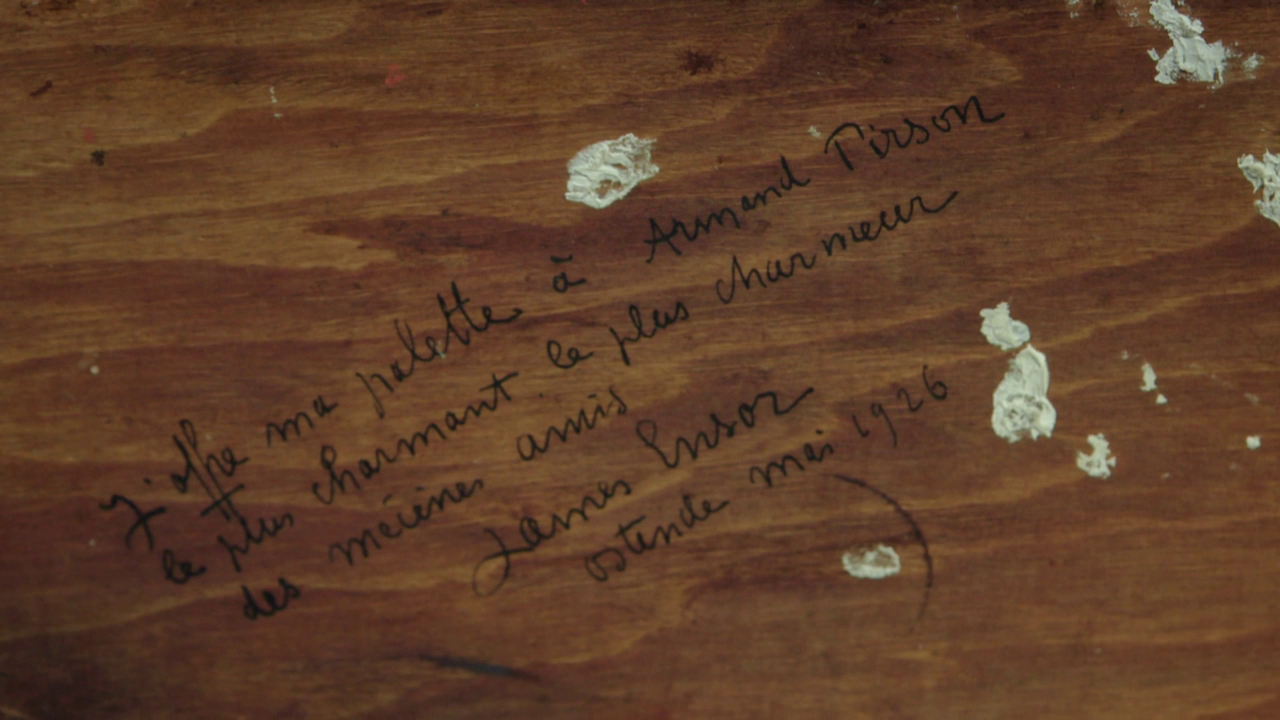 J'offre ma palette à Armand Pirson
le plus charmant le plus charmeur
des mécènes amis
James Ensor
ostende mai 1926